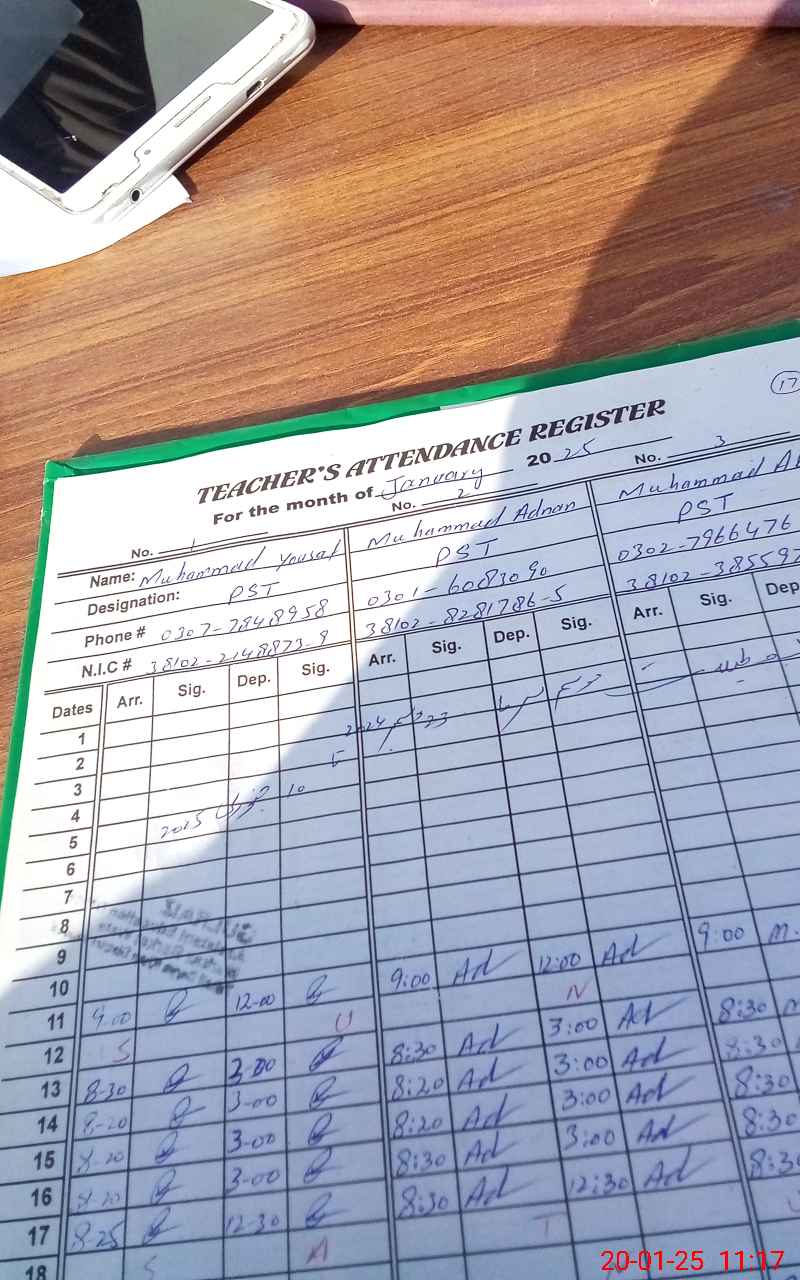 17
TEACHER'S ATTENDANCE REGISTER
For the month of January 2025
No. 1 No. 2 No. 3
Name: Muhammad Yousaf Muhammad Adnan Muhammad
Designation: PST PST PST
Phone # 0307-7848958 0301-6083090 0302-7966476
N.I.C # 38102-2148873-9 38102-8281786-5 38102-385597
Dates Arr. Sig. Dep. Sig. Arr. Sig. Dep. Sig. Arr. Sig. Dep
1
2 2024 23
3
4 10
5 2025
6
7
8
9
10
11 9.00 12-00 9:00 Ad 12:00 Ad 9:00 M.
12 S U N
13 8-30 3-00 8:30 Ad 3:00 Ad 8:30
14 8-20 3-00 8:20 Ad 3:00 Ad 8:30
15 8-20 3-00 8:20 Ad 3:00 Ad 8:30
16 8-20 3-00 8:30 Ad 3:00 Ad 8:30
17 8-25 12-30 8:30 Ad 12:30 Ad 8:30
18 S A T
20-01-25 11:17